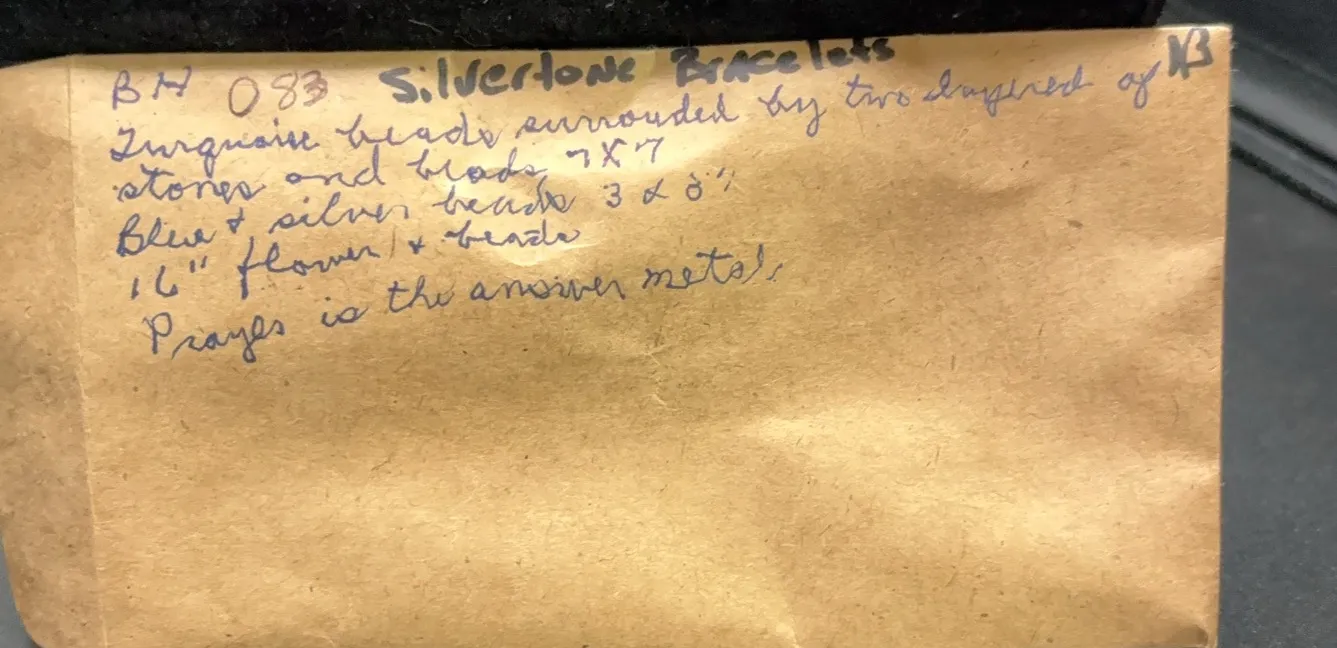 BH 083 Silvertone Bracelets NB
Turquoise beads surrouded by two layered of
stones and beads 7X7
Blue + silver beads 3 x 8"
16" flower + beads
Prayes is the answer metal.